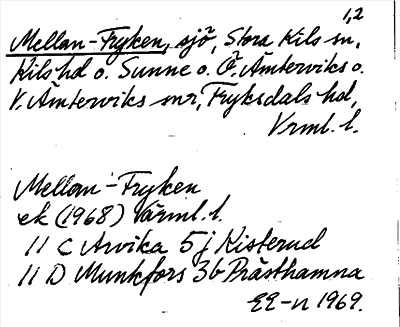 1,2
Mellan-Fryken, sjö, Stora Kils sn,
Kils hd o. Sunne o. Ö. Ämterviks o.
V. Ämterviks snr, Fryksdals hd,
Vrml. l.
Mellan-Fryken
ek (1968) Värml. l.
11 C Arvika 5 j Kisterud
11 D Munkfors 3b Prästhamna
EE-n 1969.